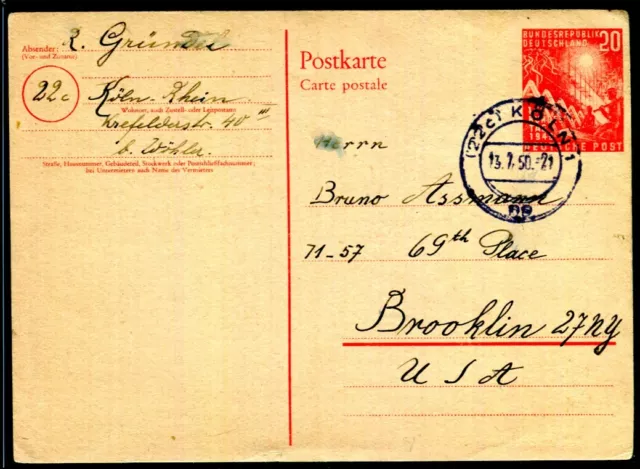 Absender:
(Vor- und Zuname)
R. Gründel
22c
Köln-Rhein
Wohnort, auch Zustell- oder Leitpostamt
Krefelderstr. 40 III
b. Wöhler
Straße, Hausnummer, Gebäudeteil, Stockwerk oder Postschließfachnummer;
bei Untermietern auch Name des Vermieters
Postkarte
Carte postale
BUNDESREPUBLIK
DEUTSCHLAND
20
DEUTSCHE POST
(22c) KÖLN 1
50.-21
Herrn
Bruno Assmann
71-57 69th Place
Brooklin 27 NY
USA